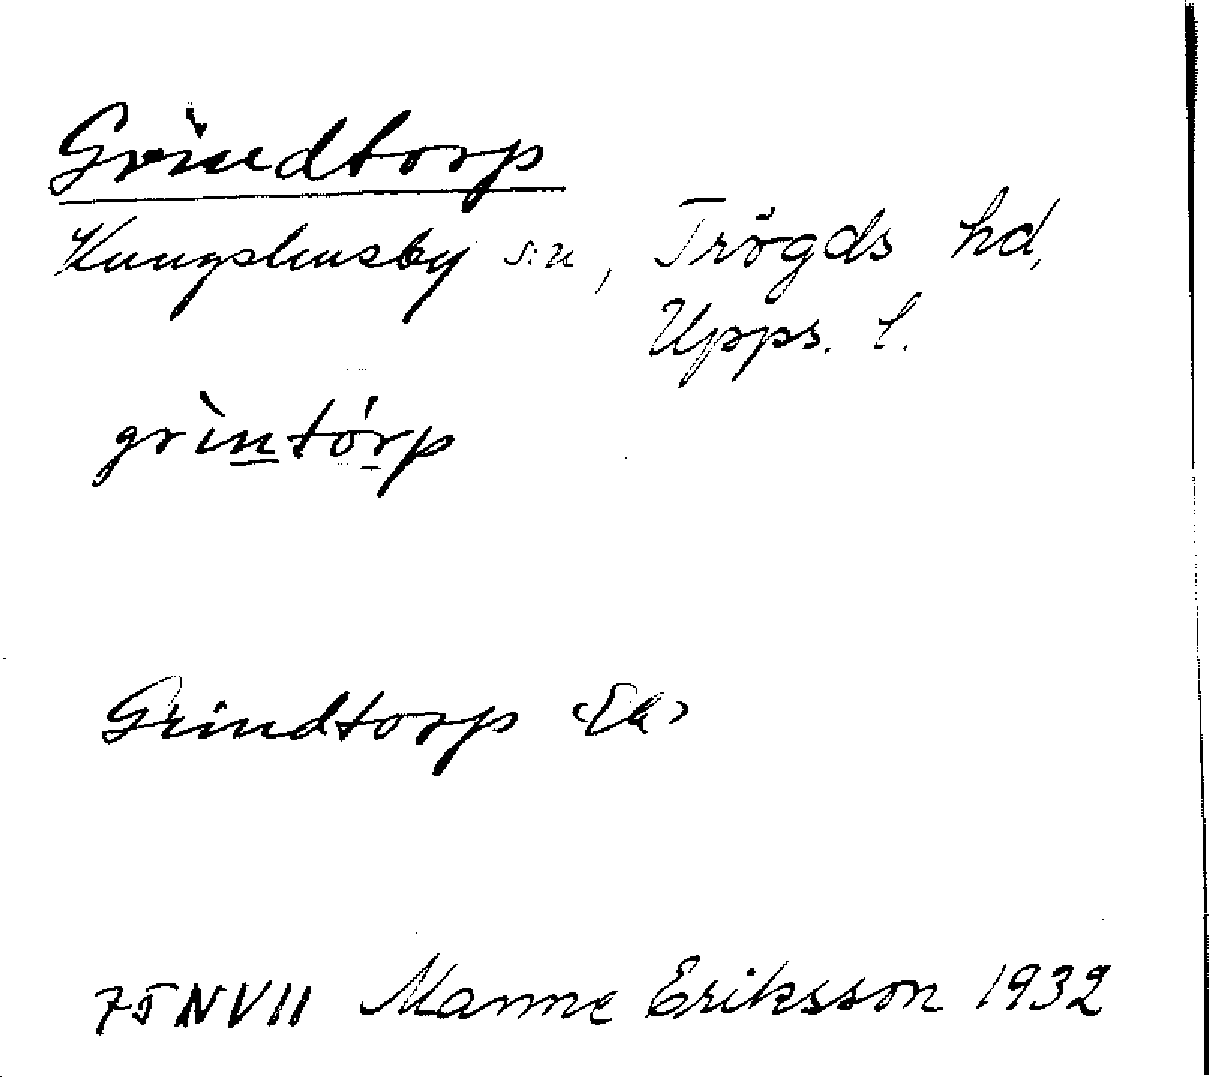 Grindtorp
Kungshusby sn, Trögds hd,
Upps. l.
grìntórp
Grindtorp
75NVII Manne Eriksson 1932